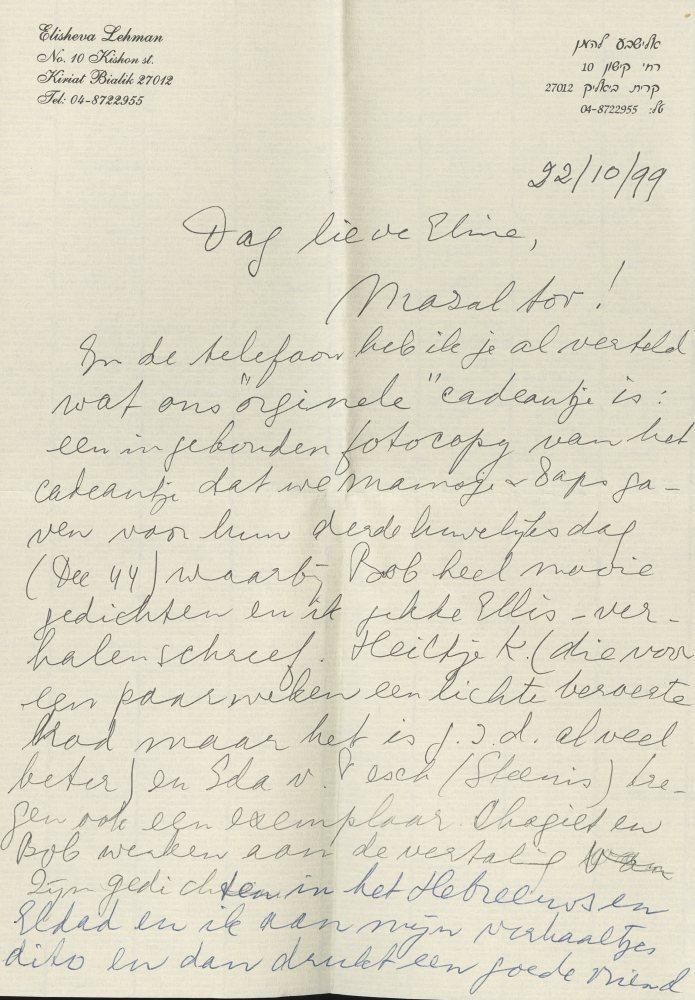 Elisheva Lehman
No. 10 Kishon st.
Kiriat Bialik 27012
Tel: 04-8722955
אלישבע להמן
רח' קישון 10
קרית ביאליק 27012
טל: 04-8722955
22/10/99
Dag lieve Eline,
Masal tov!
In de telefoon heb ik je al verteld
wat ons "orginele" cadeautje is:
een ingebonden fotocopy van het
cadeautje dat we mamsje & Paps ga-
ven voor hun derde huwelijksdag
(Dec 44) waarbij Bob heel mooie
gedichten en ik gekke Ellis-ver-
halen schreef. Heiltje K. (die voor
een paar weken een lichte beroerte
had maar het is g.z.d. al veel
beter) en Ida v. Pesch (Steenis) kre-
gen ook een exemplaar. Chagiet en
Bob werken aan de vertaling van
zijn gedichten in het Hebreeuws en
Eldad en ik aan mijn verhaaltjes
dito en dan drukt een goede vriend